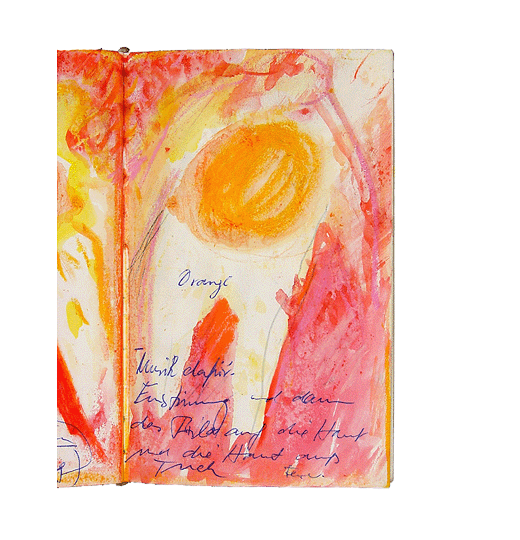 Orange
Musik dafür.
Einstimmung und dann
das Bild auf die Haut
und die Haut aufs
Tuch